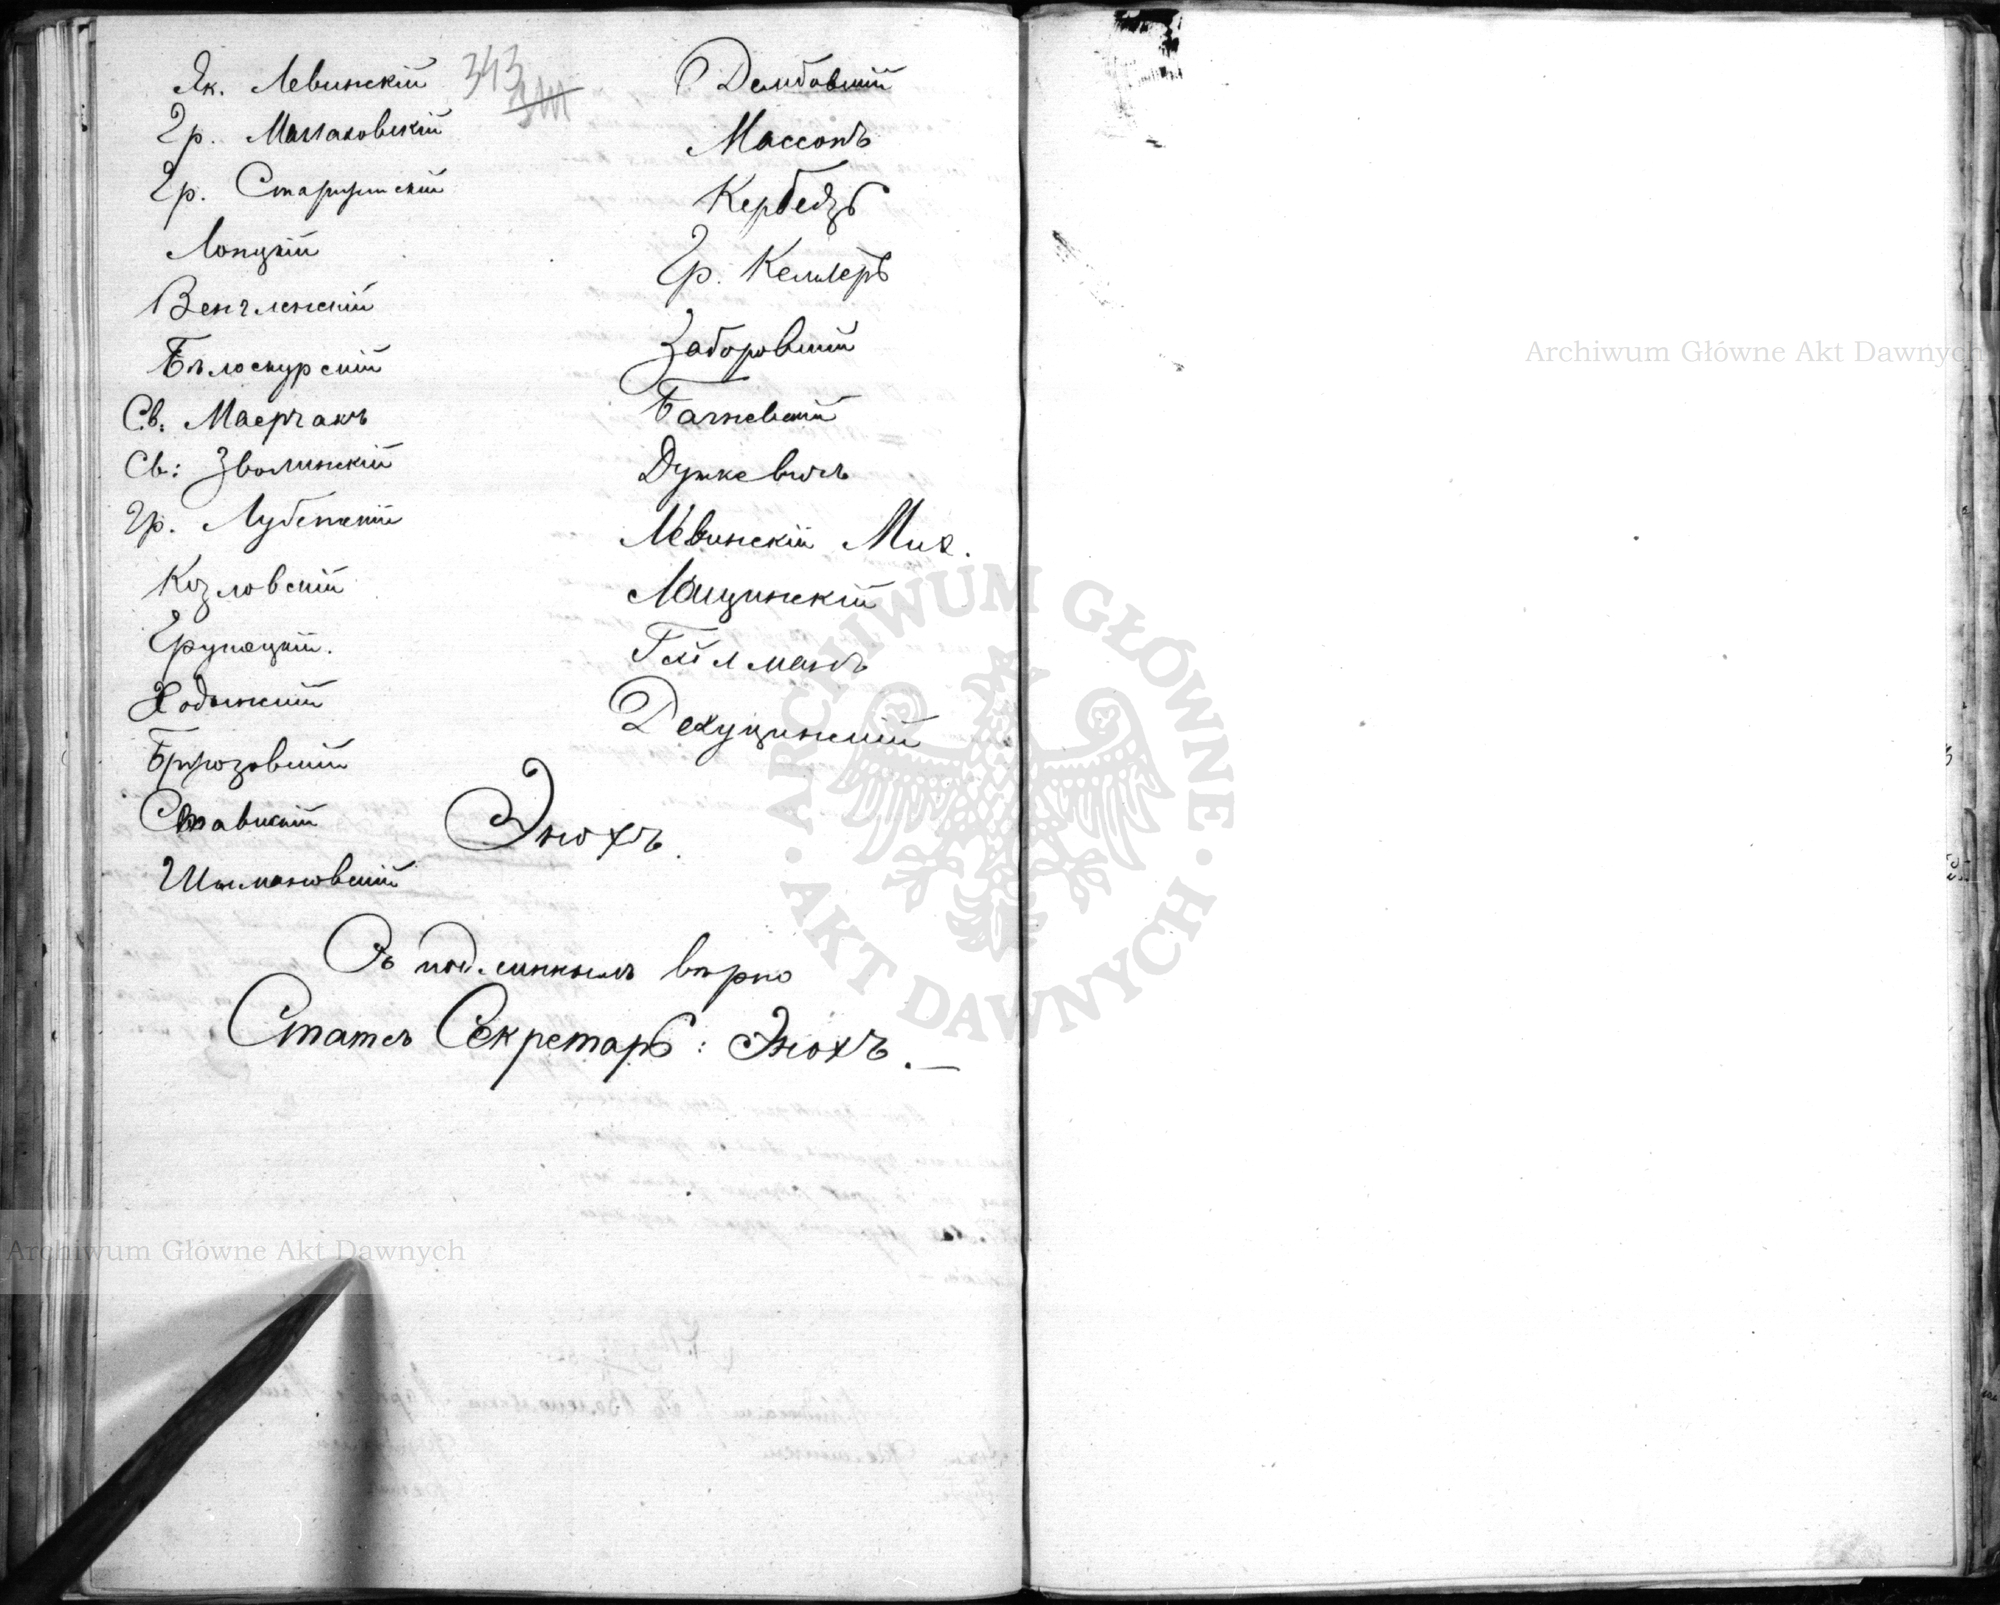 343
Як. Левинскій
Гр. Малаховскій
Гр. Старжинскій
Лонцкій
Венгленскій
Бѣлоскурскій
Св. Маерчакъ
Св: Зволинскій
Гр. Лубенскій
Козловскій
Грушецкій.
Ходынскій
Бржозовскій
Ставискій
Шимановскій
Дембовскій
Массонъ
Кербедзъ
Гр. Келлеръ
Заборовскій
Багневскій
Дуткевичъ
Левинскій Мих.
Лащинскій
Гейлманъ
Энохъ.
Съ подлиннымъ вѣрно
Статсъ Секретарь: Энохъ.
Archiwum Główne Akt Dawnych
Archiwum Główne Akt Dawnych
ARCHIWUM GŁÓWNE
AKT DAWNYCH